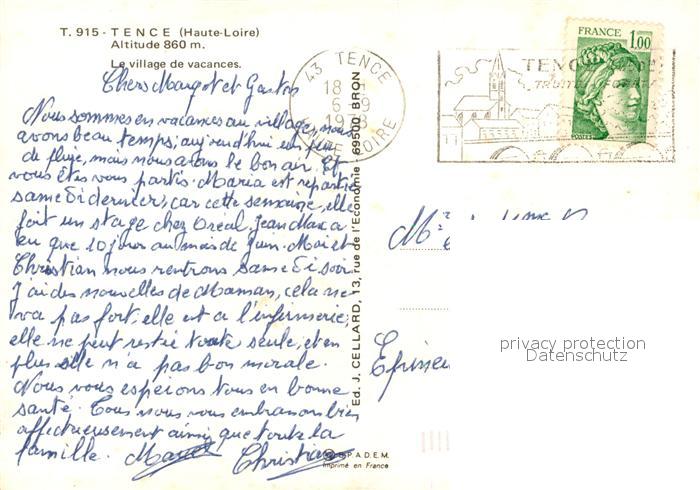 T. 915 - TENCE (Haute-Loire)
Altitude 860 m.
Le village de vacances.
Chers Margot et Gaston
Nous sommes en vacances au village, nous
avons beau temps; aujourd'hui un peu
de pluje, mais nous avons le bon air. Et
vous êtes vous partis. Maria est repartie
samedi dernier, car cette semaine, elle
fait un stage chez Oréal. Jean Max a
eu que 10 jour au mois de Juin. Moi et
Christian nous rentrons samedi soir
J'ai des nouvelles de Maman, cela ne
va pas fort, elle est a l'enfirmerie,
elle ne peut resté toute seule, et en
plus elle n'a pas bon morale.
Nous vous espérons tous en bonne
santé. Tous nous vous embrassons bien
affectueusement ainsi que toute la
famille. Christian
Ed. J. CELLARD, 13, rue de l'Economie - 69500 BRON
S.P.A.D.E.M.
Imprimé en France
43 TENCE
18 H
6-9
1978
HTE LOIRE
TENCE
FRANCE 1,00
POSTES
privacy protection
Datenschutz